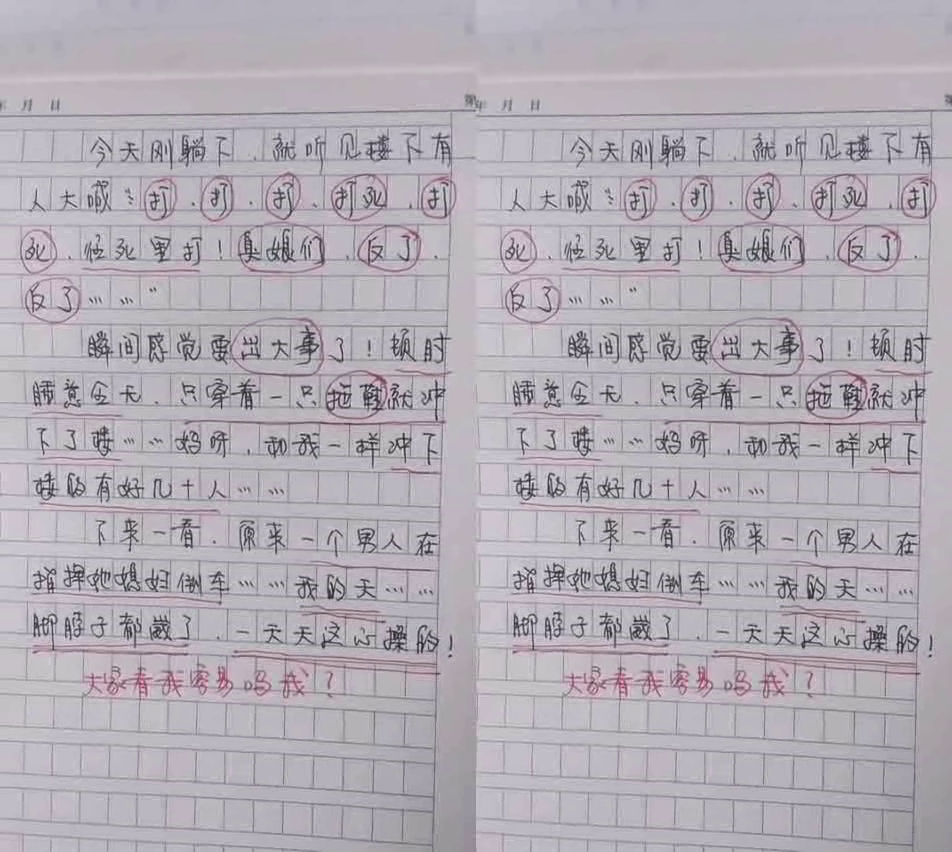 年 月 日
今天刚躺下，就听见楼下有
人大喊："打、打、打、打死、打
死、往死里打！臭娘们、反了、
反了……"
瞬间感觉要出大事了！顿时
睡意全无，只穿着一只拖鞋就冲
下了楼……妈呀，和我一样冲下
楼的有好几十人……
下来一看，原来一个男人在
指挥她媳妇倒车……我的天……
脚脖子都崴了，一天天这心操的！
大家看我容易吗我？
第
年 月 日
今天刚躺下，就听见楼下有
人大喊："打、打、打、打死、打
死、往死里打！臭娘们、反了、
反了……"
瞬间感觉要出大事了！顿时
睡意全无，只穿着一只拖鞋就冲
下了楼……妈呀，和我一样冲下
楼的有好几十人……
下来一看，原来一个男人在
指挥她媳妇倒车……我的天……
脚脖子都崴了，一天天这心操的！
大家看我容易吗我？